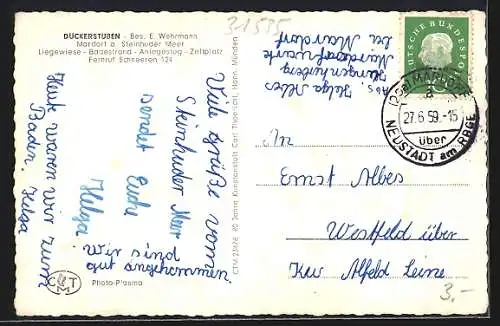 DÜCKERSTUBEN - Bes. E. Wehrmann
Mardorf a. Steinhuder Meer
Liegewiese - Badestrand - Anlegesteg - Zeltplatz
Fernruf Schneeren 124
31535
Abs. Helga Albes
bei Mardorf
DEUTSCHE BUNDESPOST
(20a) MARDORF
27.6.59.-15
über
NEUSTADT am RBGE
Viele Grüße vom
Steinhuder Meer
sendet Euch
Helga
Wir sind
gut angekommen.
Heute waren wir zum
Baden. Helga
CTM 23126 80 Jahre Kunstanstalt Carl Thoericht, Hann. Münden
An
Ernst Albes
Westfeld über
Krs. Alfeld Leine
3.-
CTM
Photo-Plasina